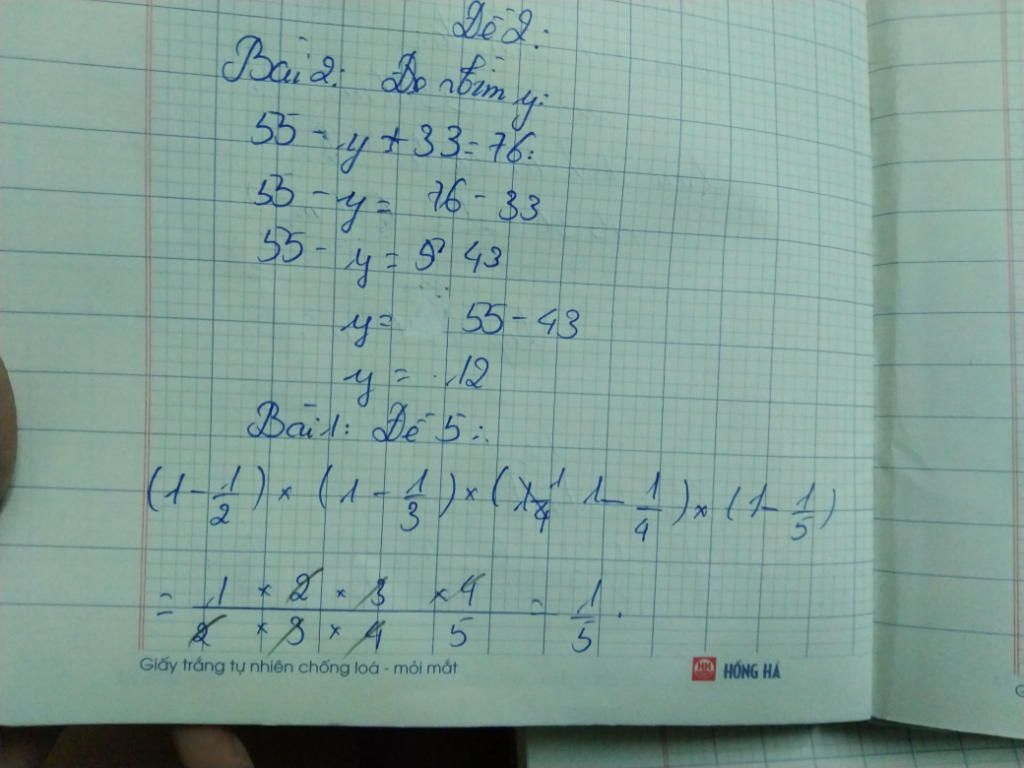 Đề 2:
Bài 2: Đo tìm y:
55 - y + 33 = 76:
55 - y = 76 - 33
55 - y = 43
y = 55 - 43
y = 12
Bài 1: Đề 5:
(1 - 1/2) × (1 - 1/3) × (1 - 1/4) × (1 - 1/5)
= 1 × 2 × 3 × 4 / 2 × 3 × 4 × 5 = 1/5.
Giấy trắng tự nhiên chống loá - mỏi mắt HH HỒNG HÀ